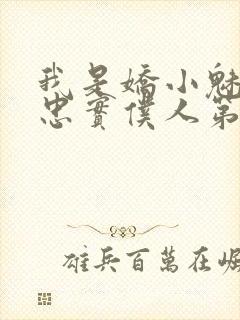 我是嬌小魅
忠實僕人第
雄兵百萬在崛